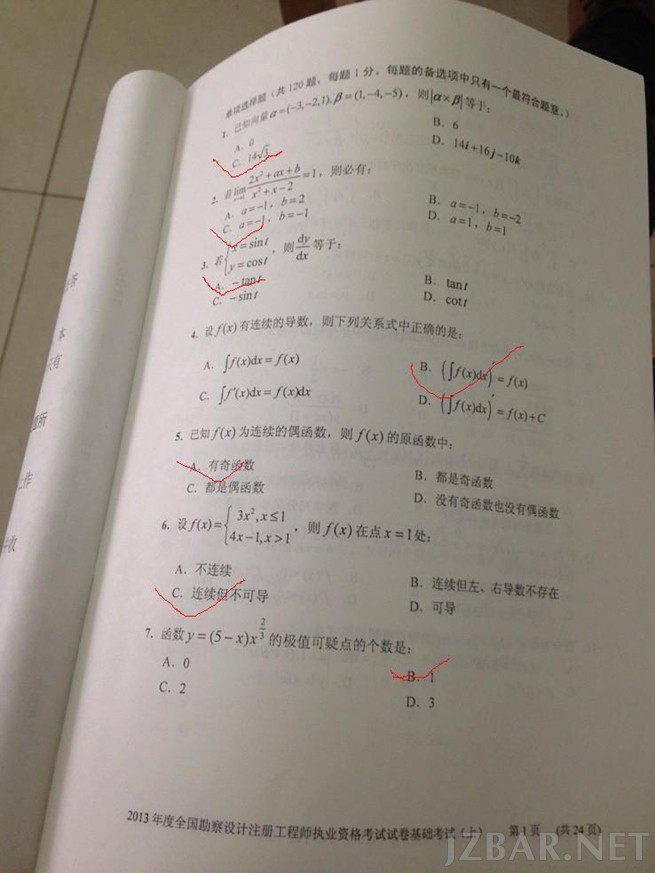 单项选择题（共120题，每题1分。每题的备选项中只有一个最符合题意。）
1. 已知向量α=(−3,−2,1), β=(1,−4,−5)，则|α×β|等于:
A. 0 B. 6
C. 14√3 D. 14i+16j−10k
2. 若lim (2x²+ax+b)/(x²+x−2)=1，则必有:
A. a=−1，b=2 B. a=−1，b=−2
C. a=−1，b=−1 D. a=1，b=1
3. 若{x=sint y=cost，则dy/dx等于:
A. −tant B. tant
C. −sint D. cott
4. 设f(x)有连续的导数，则下列关系式中正确的是:
A. ∫f(x)dx=f(x) B. (∫f(x)dx)′=f(x)
C. ∫f′(x)dx=f(x)dx D. (∫f(x)dx)′=f(x)+C
5. 已知f(x)为连续的偶函数，则f(x)的原函数中:
A. 有奇函数 B. 都是奇函数
C. 都是偶函数 D. 没有奇函数也没有偶函数
6. 设f(x)={3x²,x≤1 4x−1,x>1，则f(x)在点x=1处:
A. 不连续 B. 连续但左、右导数不存在
C. 连续但不可导 D. 可导
7. 函数y=(5−x)x^(2/3)的极值可疑点的个数是:
A. 0 B. 1
C. 2 D. 3
2013年度全国勘察设计注册工程师执业资格考试试卷基础考试（上） 第1页 （共24页）
JZBAR.NET